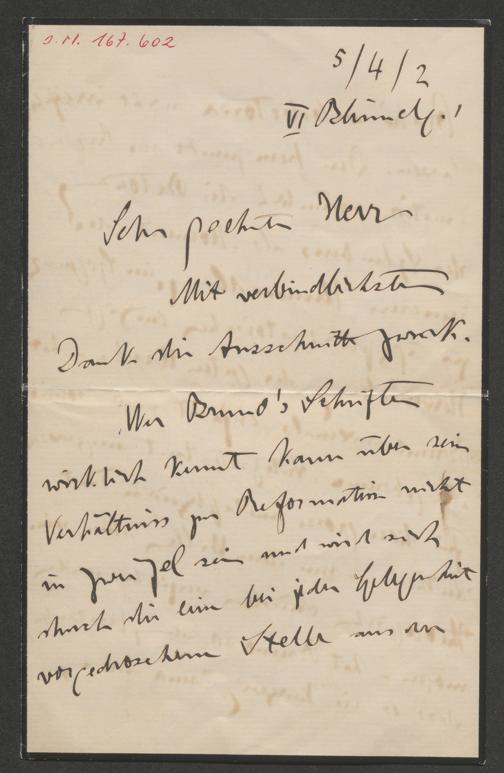 I.N. 167.602
5/4/2
VI
Sehr geehrter Herr
Mit verbindlichstem
Dank die Ausschnitte zurück.
Wer Bruno's Schriften
wirklich kennt kann über sein
Verhältniss zur Reformation nicht
in Zweifel sein und wird sich
durch die eine bei jeder Gelegenheit
vorgedroschene Stelle aus der